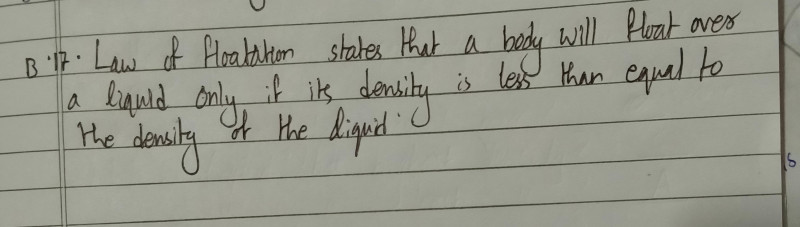 B.17. Law of floatation states that a body will float over
a liquid only if its density is less than equal to
the density of the liquid.